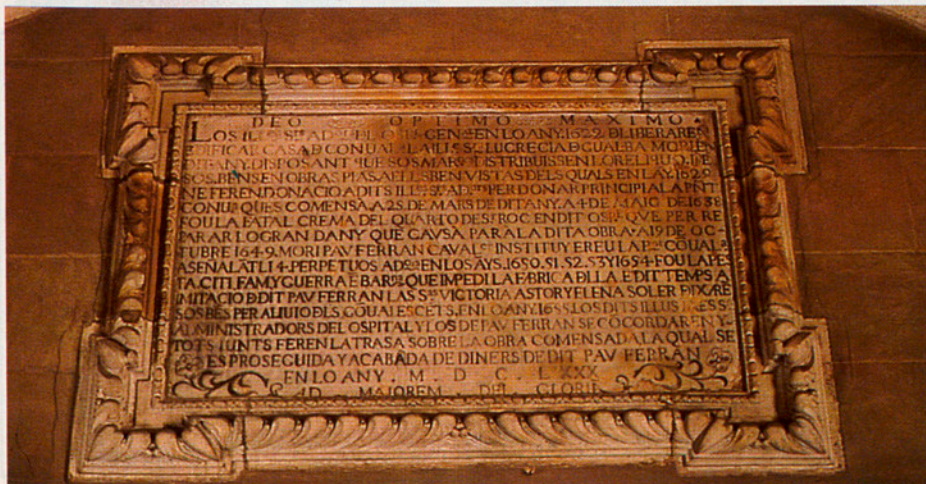 DEO OPTIMO MAXIMO
LOS ILL^ES S^RS AD^ORS GEN^RAL EN LO ANY. 1629. DLIBERAREN
EDIFICAR CASA D CONUAL LA ILL^E S^RA LUCRECIA D GUALBA MORI EN
DIT ANY. DISPOSANT QUE SOS MAR^ORS DISTRIBUISSEN LO RELIQUO. DE
SOS. BENS EN OBRAS PIAS. A ELLS BEN VISTAS DELS QUALS EN L AY. 1629.
NE FEREN DONACIO A DITS ILL^ES S^RS AD^ORS PER DONAR PRINCIPI A LA PNT
CONU^A QUES COMENSA. A 25. DE MARS DE DIT ANY. A 4 DE MAIG DE 1638
FOU LA FATAL CREMA DEL QUARTO DE S^T ROC EN DIT OSP^L QUE PER RE
PARAR LO GRAN DANY QUE CAUSA PARA LA DITA OBRA. A 19 DE OC-
TUBRE 1649. MORI PAV FERRAN CAVAL^ER INSTITUY EREU LA P^NT CÕUAL^A
ASEÑALÀTLI 4. PERPETUOS AD^ORS EN LOS ÃYS. 1650. 51. 52. 53 Y 1654. FOU LA PES
TA. CITI. FAM Y GUERRA E BAR^NA QUE IMPEDI LA FABRICA D LLA E DIT TEMPS A
IMITACIO D DIT PAV FERRAN LAS S^RAS VICTORIA ASTOR Y ELENA SOLER DIXARẼ
SOS BẼS PER ALIUIO DLS CÕUALESCETS. EN LO ANY. 1655. LOS DITS ILLUS^RES S^RS
ADMINISTRADORS DEL OSPITAL Y LOS DE PAV FERRAN SE CÕCORDAREN Y
TOTS IUNTS FEREN LA TRASA SOBRE LA OBRA COMENSADA, LA QUAL SE
ES PROSEGUIDA Y ACABADA DE DINERS DE DIT PAV FERRAN
EN LO ANY. M. D C. LXXX
AD MAIOREM DEI GLORIE